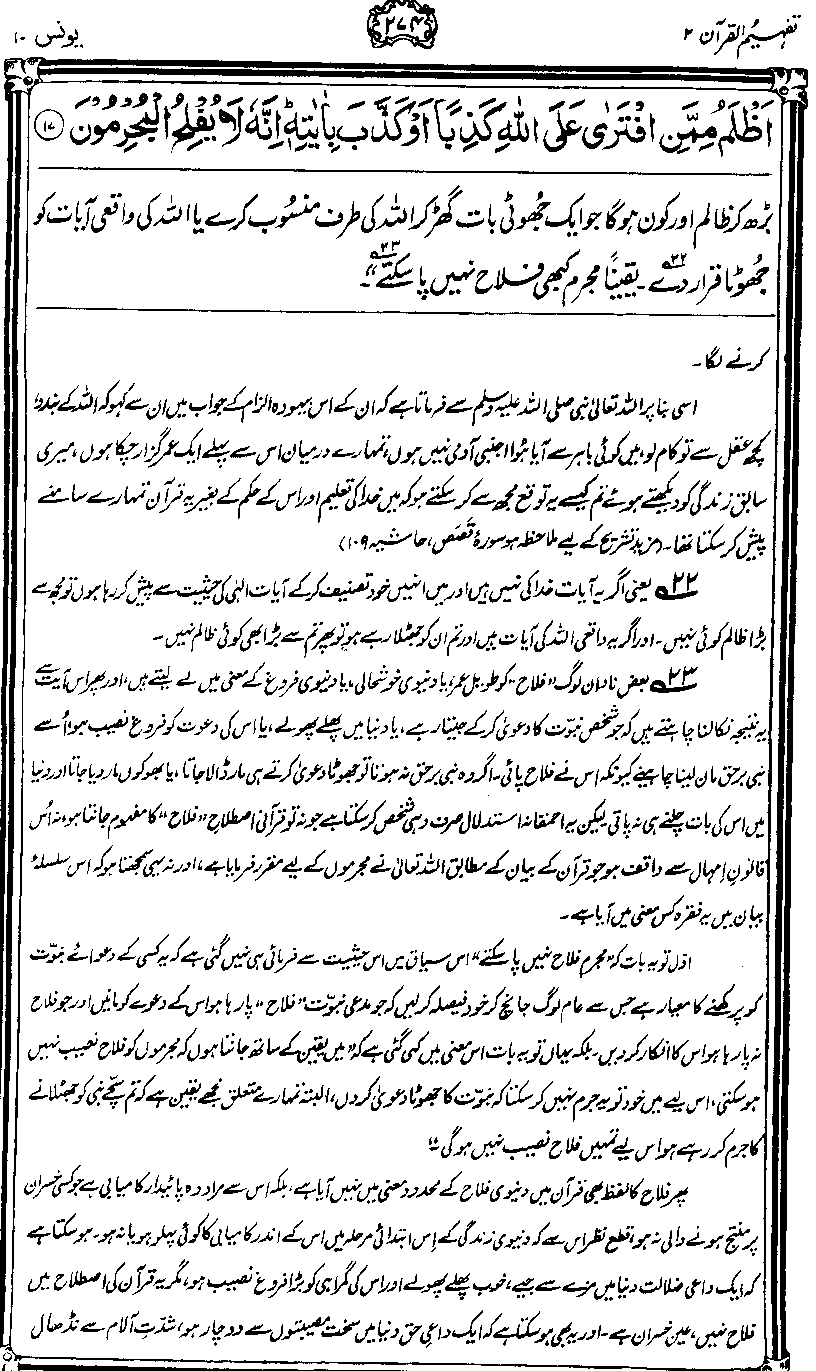 تفہیم القرآن ۲
۲۷۴
یونس ۱۰
اَظْلَمُ مِمَّنِ افْتَرٰی عَلَی اللّٰهِ كَذِبًا اَوْ كَذَّبَ بِاٰیٰتِهٖ ؕ اِنَّهٗ لَا یُفْلِحُ الْمُجْرِمُوْنَ ۝۱۷
بڑھ کر ظالم اور کون ہوگا جو ایک جُھوٹی بات گھڑ کر اللہ کی طرف منسُوب کرے یا اللہ کی واقعی آیات کو
جُھوٹا قرار دے ۲۲۔ یقیناً مجرم کبھی فلاح نہیں پا سکتے ۲۳“۔
کرنے لگا۔
اسی بنا پر اللہ تعالیٰ نبی صلی اللہ علیہ وسلم سے فرماتا ہے کہ ان کے اس بیہودہ الزام کے جواب میں ان سے کہو کہ اللہ کے بندو!
کچھ عقل سے تو کام لو، میں کوئی باہر سے آیا ہُوا اجنبی آدمی نہیں ہوں، تمہارے درمیان اس سے پہلے ایک عمر گزار چکا ہوں، میری
سابق زندگی کو دیکھتے ہوئے تم کیسے یہ توقع مجھ سے کر سکتے ہو کہ میں خدا کی تعلیم اور اس کے حکم کے بغیر یہ قرآن تمہارے سامنے
پیش کر سکتا تھا۔ (مزید تشریح کے لیے ملاحظہ ہو سورۂ قَصَص، حاشیہ ۱۰۹)
۲۲ یعنی اگر یہ آیات خدا کی نہیں ہیں اور میں انہیں خود تصنیف کر کے آیات الٰہی کی حیثیت سے پیش کر رہا ہوں تو مجھ سے
بڑا ظالم کوئی نہیں۔ اور اگر یہ واقعی اللہ کی آیات ہیں اور تم ان کو جھٹلا رہے ہو تو پھر تم سے بڑا بھی کوئی ظالم نہیں۔
۲۳ بعض نادان لوگ ”فلاح“ کو طویل عمر، یا دنیوی خوشحالی، یا دنیوی فروغ کے معنی میں لے لیتے ہیں، اور پھر اس آیت سے
یہ نتیجہ نکالنا چاہتے ہیں کہ جو شخص نبوّت کا دعویٰ کر کے جیتا رہے، یا دنیا میں پھلے پھولے، یا اس کی دعوت کو فروغ نصیب ہو، اُسے
نبی برحق مان لینا چاہیے کیونکہ اس نے فلاح پائی۔ اگر وہ نبی برحق نہ ہوتا تو جھوٹا دعویٰ کرتے ہی مار ڈالا جاتا، یا بھوکوں مار دیا جاتا اور دنیا
میں اس کی بات چلنے ہی نہ پاتی۔ لیکن یہ احمقانہ استدلال صرف وہی شخص کر سکتا ہے جو نہ تو قرآنی اصطلاح ”فلاح“ کا مفہوم جانتا ہو، نہ اُس
قانونِ اِمہال سے واقف ہو جو قرآن کے بیان کے مطابق اللہ تعالیٰ نے مجرموں کے لیے مقرر فرمایا ہے، اور نہ یہی سمجھتا ہو کہ اس سلسلۂ
بیان میں یہ فقرہ کس معنی میں آیا ہے۔
اوّل تو یہ بات کہ ”مجرم فلاح نہیں پا سکتے“ اس سیاق میں اس حیثیت سے فرمائی ہی نہیں گئی ہے کہ یہ کسی کے دعوائے نبوّت
کو پرکھنے کا معیار ہے جس سے عام لوگ جانچ کر خود فیصلہ کر لیں کہ جو مدعی نبوّت ”فلاح“ پا رہا ہو اس کے دعوے کو مانیں اور جو فلاح
نہ پا رہا ہو اس کا انکار کر دیں۔ بلکہ یہاں تو یہ بات اس معنی میں کہی گئی ہے کہ ”میں یقین کے ساتھ جانتا ہوں کہ مجرموں کو فلاح نصیب نہیں
ہو سکتی، اس لیے میں خود تو یہ جرم نہیں کر سکتا کہ نبوّت کا جھوٹا دعویٰ کروں، البتہ تمہارے متعلق مجھے یقین ہے کہ تم سچّے نبی کو جھٹلانے
کا جرم کر رہے ہو اس لیے تمہیں فلاح نصیب نہیں ہوگی“۔
پھر فلاح کا لفظ بھی قرآن میں دنیوی فلاح کے محدود معنی میں نہیں آیا ہے، بلکہ اس سے مراد وہ پائیدار کامیابی ہے جو کسی خسران
پر منتج ہونے والی نہ ہو، قطع نظر اس سے کہ دنیوی زندگی کے اِس ابتدائی مرحلہ میں اس کے اندر کامیابی کا کوئی پہلو ہو یا نہ ہو۔ ہو سکتا ہے
کہ ایک داعیِ ضلالت دنیا میں مزے سے جیے، خوب پھلے پھولے اور اس کی گمراہی کو بڑا فروغ نصیب ہو، مگر یہ قرآن کی اصطلاح میں
فلاح نہیں، عین خسران ہے۔ اور یہ بھی ہو سکتا ہے کہ ایک داعیِ حق دنیا میں سخت مصیبتوں سے دوچار ہو، شدّتِ آلام سے نڈھال